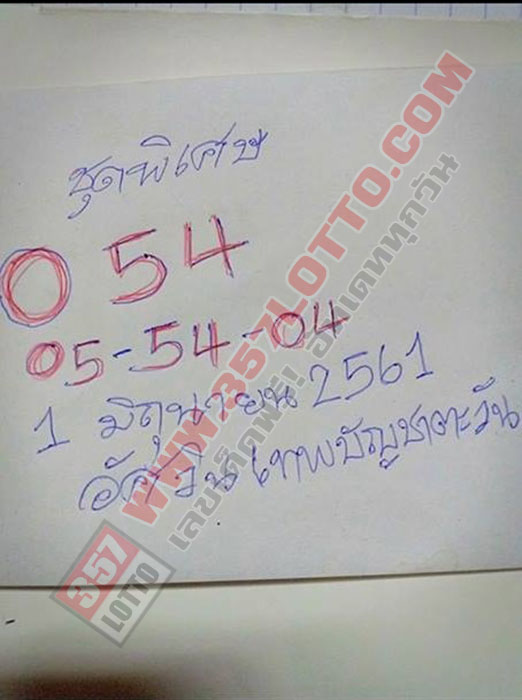 ชุดพิเศษ
0 54
05-54-04
1 มิถุนายน 2561
อัศวินเทพบัญชาตะวัน
WWW.357LOTTO.COM
เลขเด็ดฟรี! อัพเดททุกวัน
357
LOTTO